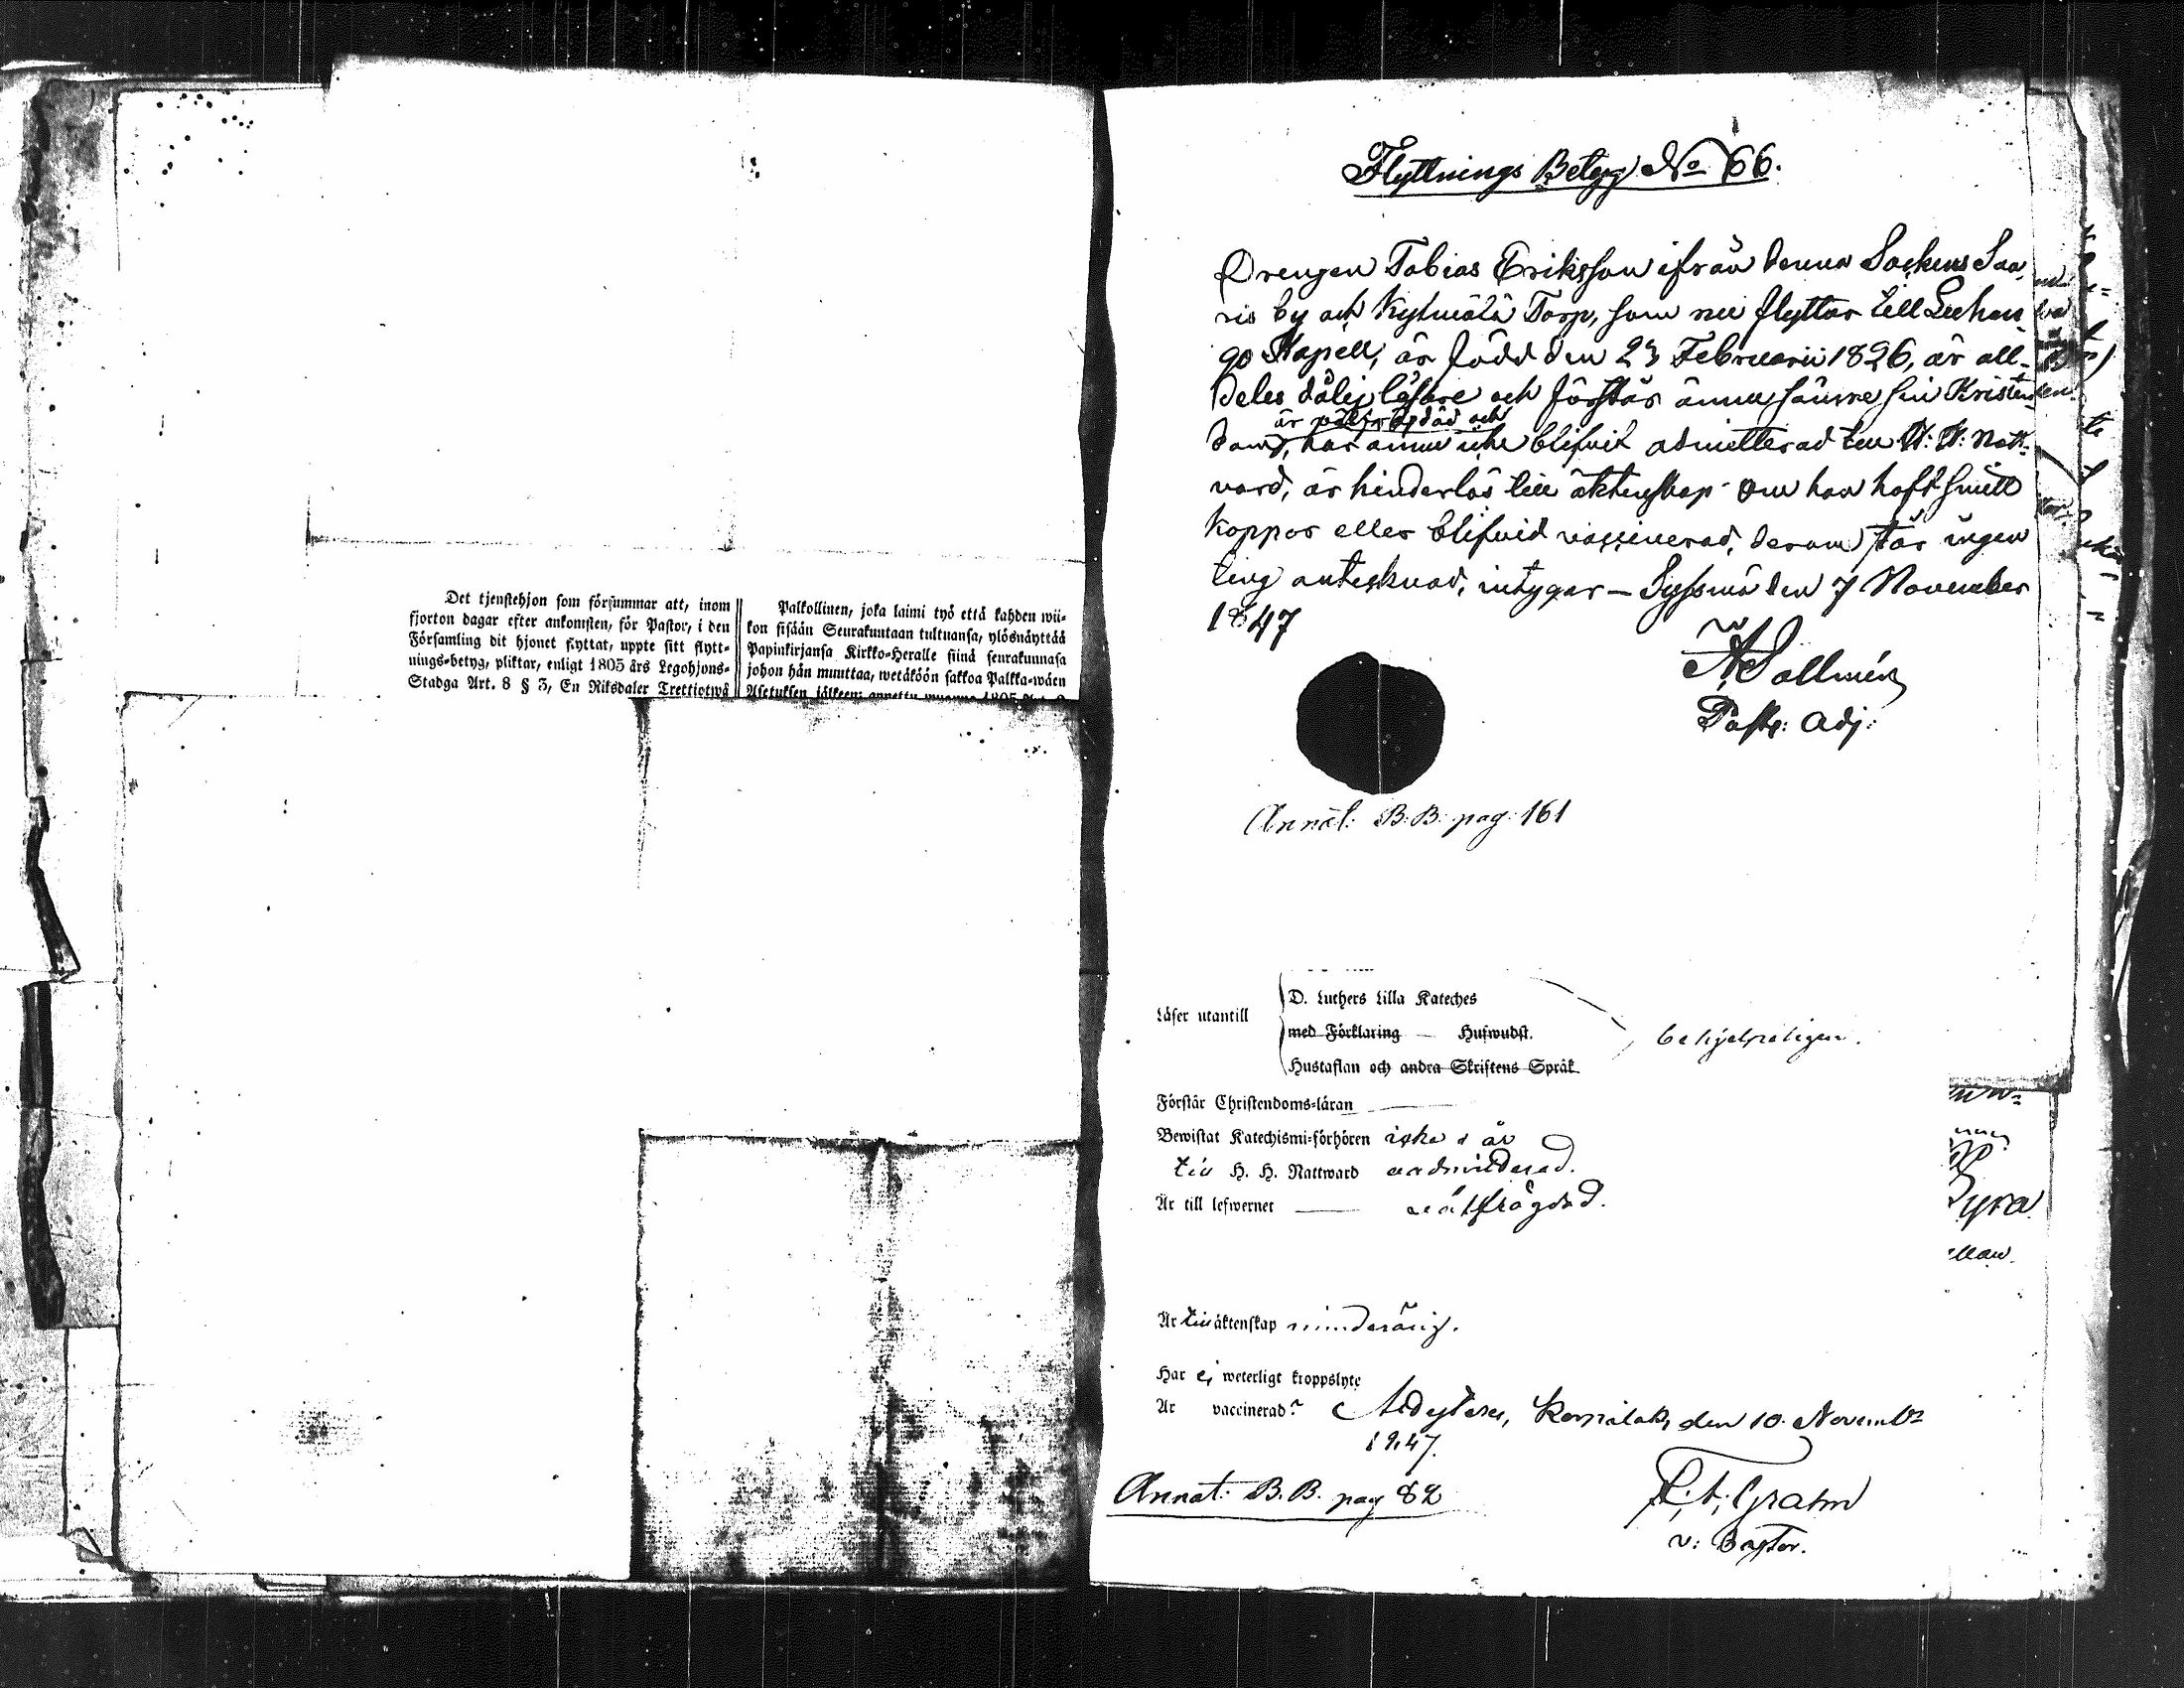 Det tjenstehjon som försummar att, inom
fjorton dagar efter ankomsten, för Pastor, i den
Församling dit hjonet flyttat, uppte sitt flytt-
nings-betyg, pliktar, enligt 1805 års Legohjons-
Stadga Art. 8 § 3, En Riksdaler Trettiotwå
Palkollinen, joka laimi lyö että kahden wii-
kon sisään Seurakuntaan tultuansa, ylösnäyttää
Papinkirjansa Kirkko-Heralle siinä seurakunnasa
johon hän muuttaa, wetäköön sakkoa Palkka-wäen
Asetuksen jälkeen; annettu wuonna 1805
Flyttnings Betyg No 66.
Drengen Tobias Eriksson ifrån denna Sockens Saa-
ris by och Kylmälä Torp, som nu flyttar till Luhan-
go Kapell, är född den 23 Februarii 1826, är all-
deles dålig läsare och förstår ännu sämre sin Kristen-
är välfrägdad och
dom, har ännu icke blifvit admitterad till H: H: Natt-
vard, är hinderlös till äktenskap - Om han haft smitt
koppor eller blifvid vaccinerad, derom står ingen
ting antecknad, intygar – Sysmä den 7 November
1847
Sallmén
Past: Adj:
Annot: B.B. pag: 161
Läser utantill
D. Luthers Lilla Kateches
med Förklaring — Hufwudst.
Hustaflan och andra Skriftens Språk
behjelpeligen.
Förstår Christendoms-läran
Bewistat Katechismi-förhören icke & är
till H. H. Nattward admitterad.
Är till lefwernet — välfrägdad.
Är till äktenskap minderårig.
Har ej weterligt kroppslyte
Är vaccinerad? Attesterar, Korpilaks den 10 Novembr
1847.
Annot: B.B. pag 82
Grahn
v: Pastor.